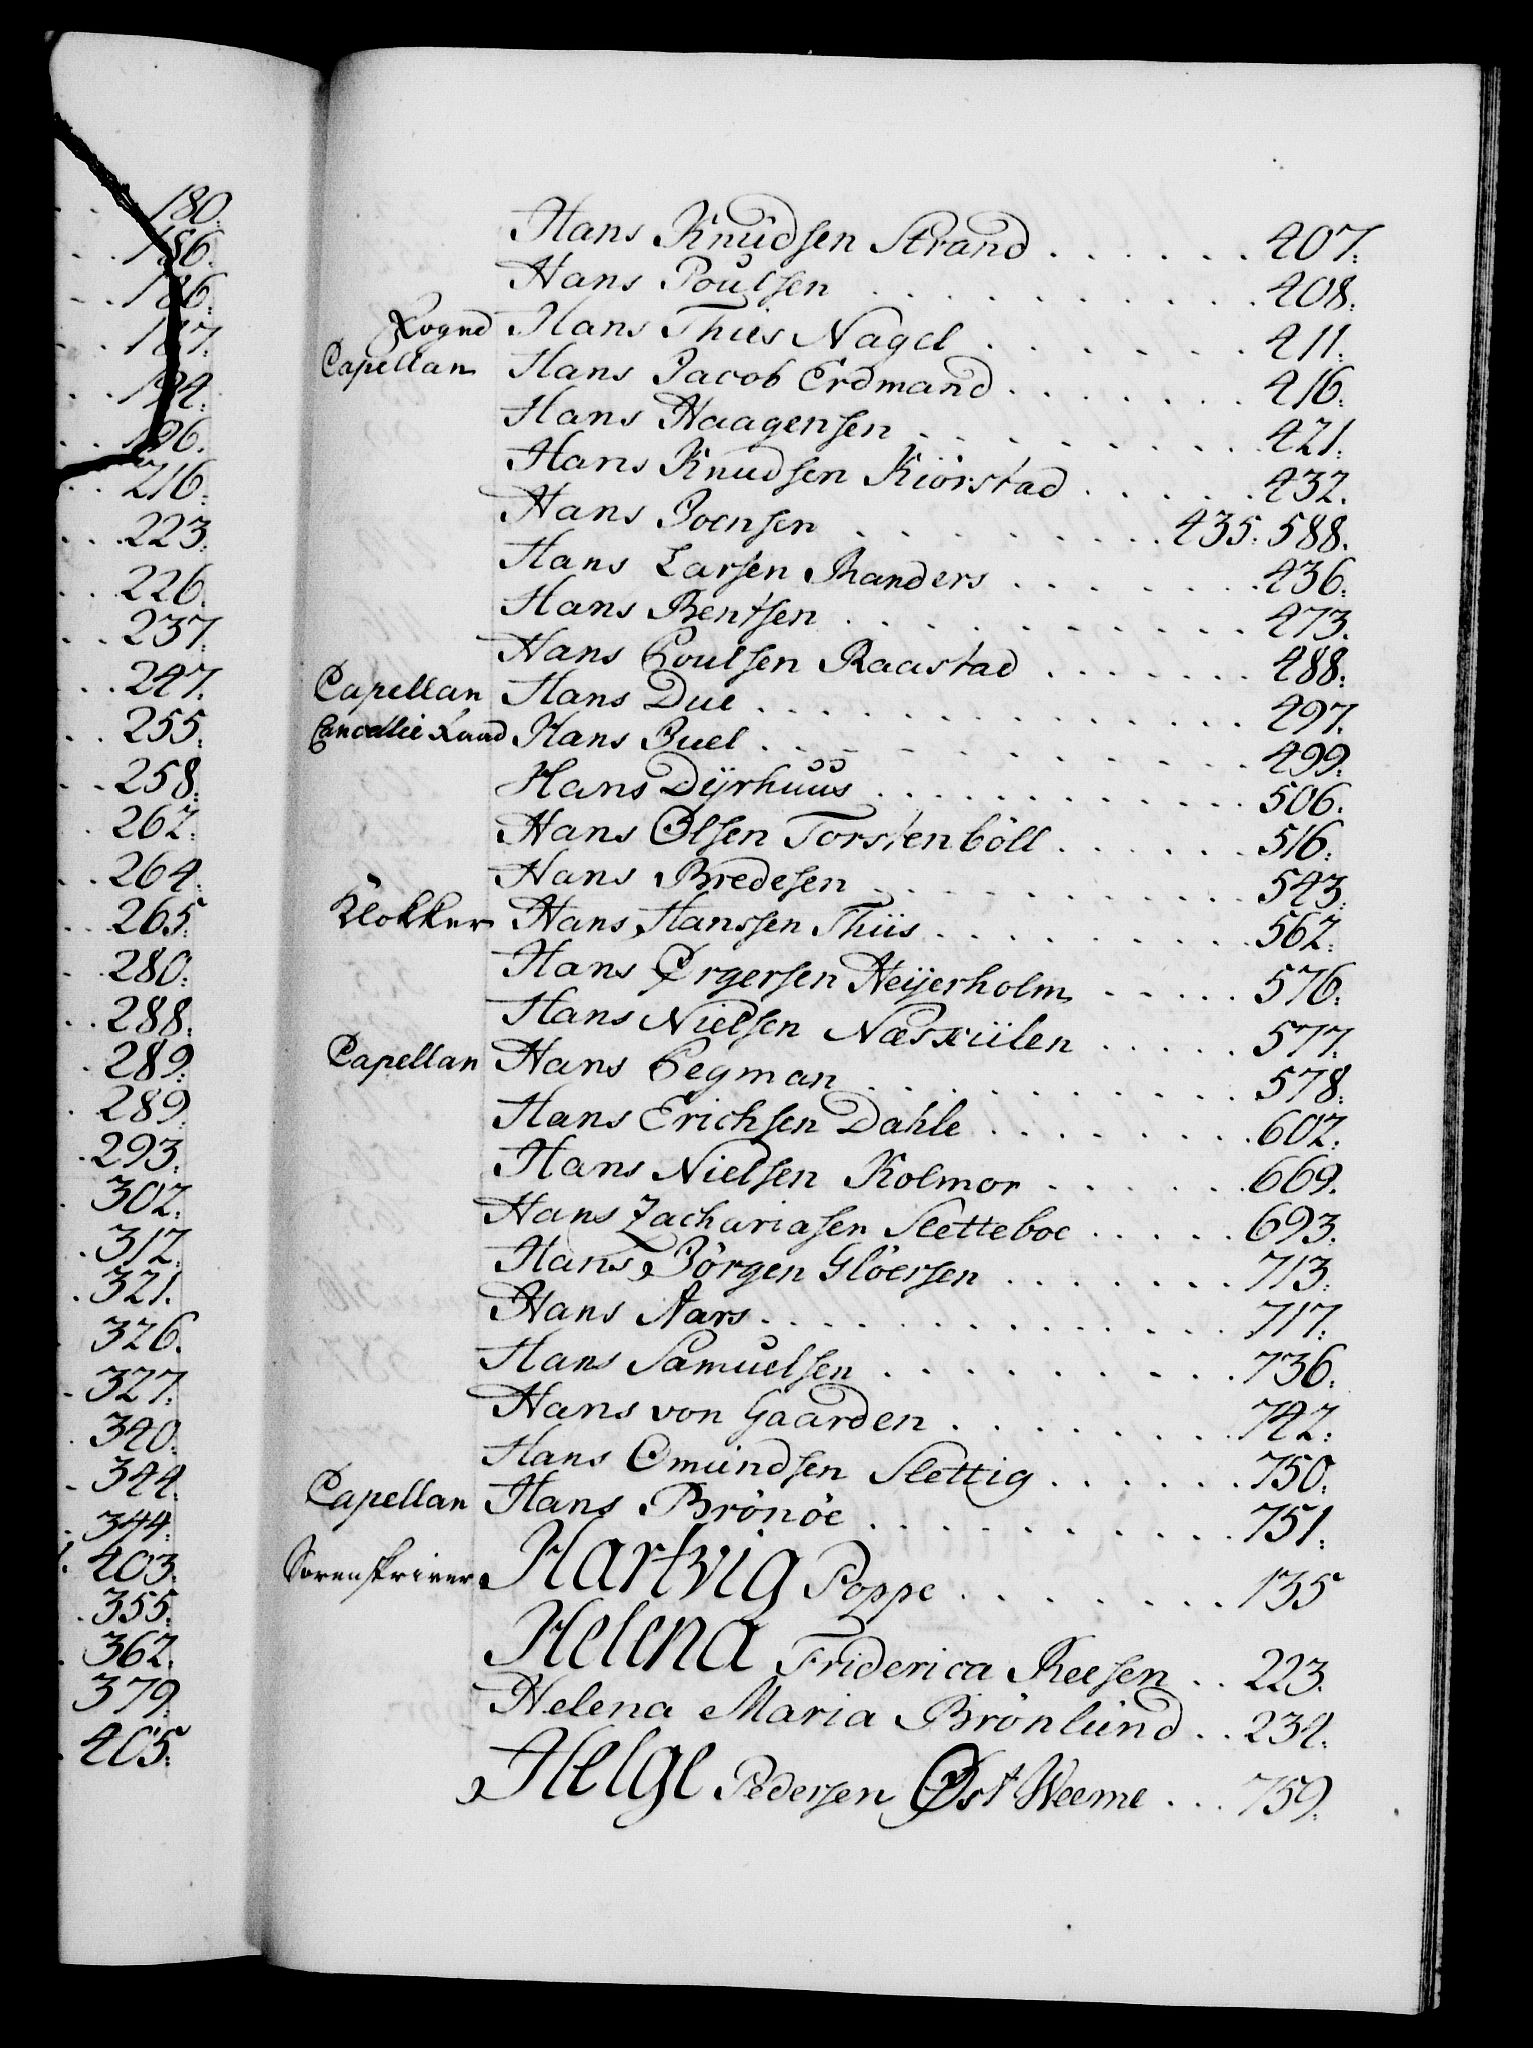 180.
186.
186.
187.
194.
196.
216.
223.
226.
237.
247.
255.
258.
262.
264.
265.
280.
288.
289.
289.
293.
302.
312.
321.
326.
327.
340.
344.
344.
403.
355.
362.
379.
405.
Hans Knudsen Strand . . . . . . 407.
Hans Poulsen . . . . . . . . . 408.
Foged Hans Thies Nagel . . . . . . . 411.
Capellan Hans Jacob Erdmand . . . . . . . 416.
Hans Haagensen . . . . . . . . . 421.
Hans Knudsen Kiörstad . . . . . . 432.
Hans Joensen . . . . . . . . . 435. 588.
Hans Larsen Randers . . . . . . . 436.
Hans Bentsen . . . . . . . . . . . 473.
Hans Poulsen Raastad . . . . . . . 488.
Capellan Hans Due . . . . . . . . . . . . . . 497.
Cancellie Raad Hans Juel . . . . . . . . . . . . . 499.
Hans Dÿrhuus . . . . . . . . . . . . 506.
Hans Olsen Torstenböll . . . . . . 516.
Hans Bredesen . . . . . . . . . . . 543.
Klokker Hans Hanssen Thiis . . . . . . . . . 562.
Hans Ørgersen Heÿerholm . . . . . 576.
Hans Nielsen Næsxiilen . . . . . 577.
Capellan Hans Pegman . . . . . . . . . . . 578.
Hans Erichsen Dahle . . . . . . . . 602.
Hans Nielsen Kolmor . . . . . . 669.
Hans Zachariasen Sletteboe . . . . . 693.
Hans Jörgen Glöersen . . . . . . . 713.
Hans Aars . . . . . . . . . . . . . . 717.
Hans Samuelsen . . . . . . . . . . 736.
Hans von Gaarden . . . . . . . . 742.
Hans Omundsen Slettig . . . . . . 750.
Capellan Hans Brönöe . . . . . . . . . . . 751.
Sorenskriver Hartvig Poppe . . . . . . . . 135
Helena Friderica Reesen . . 223.
Helena Maria Brönlund . . 234.
Helge Pedersen Øst Weeme . . . 759.